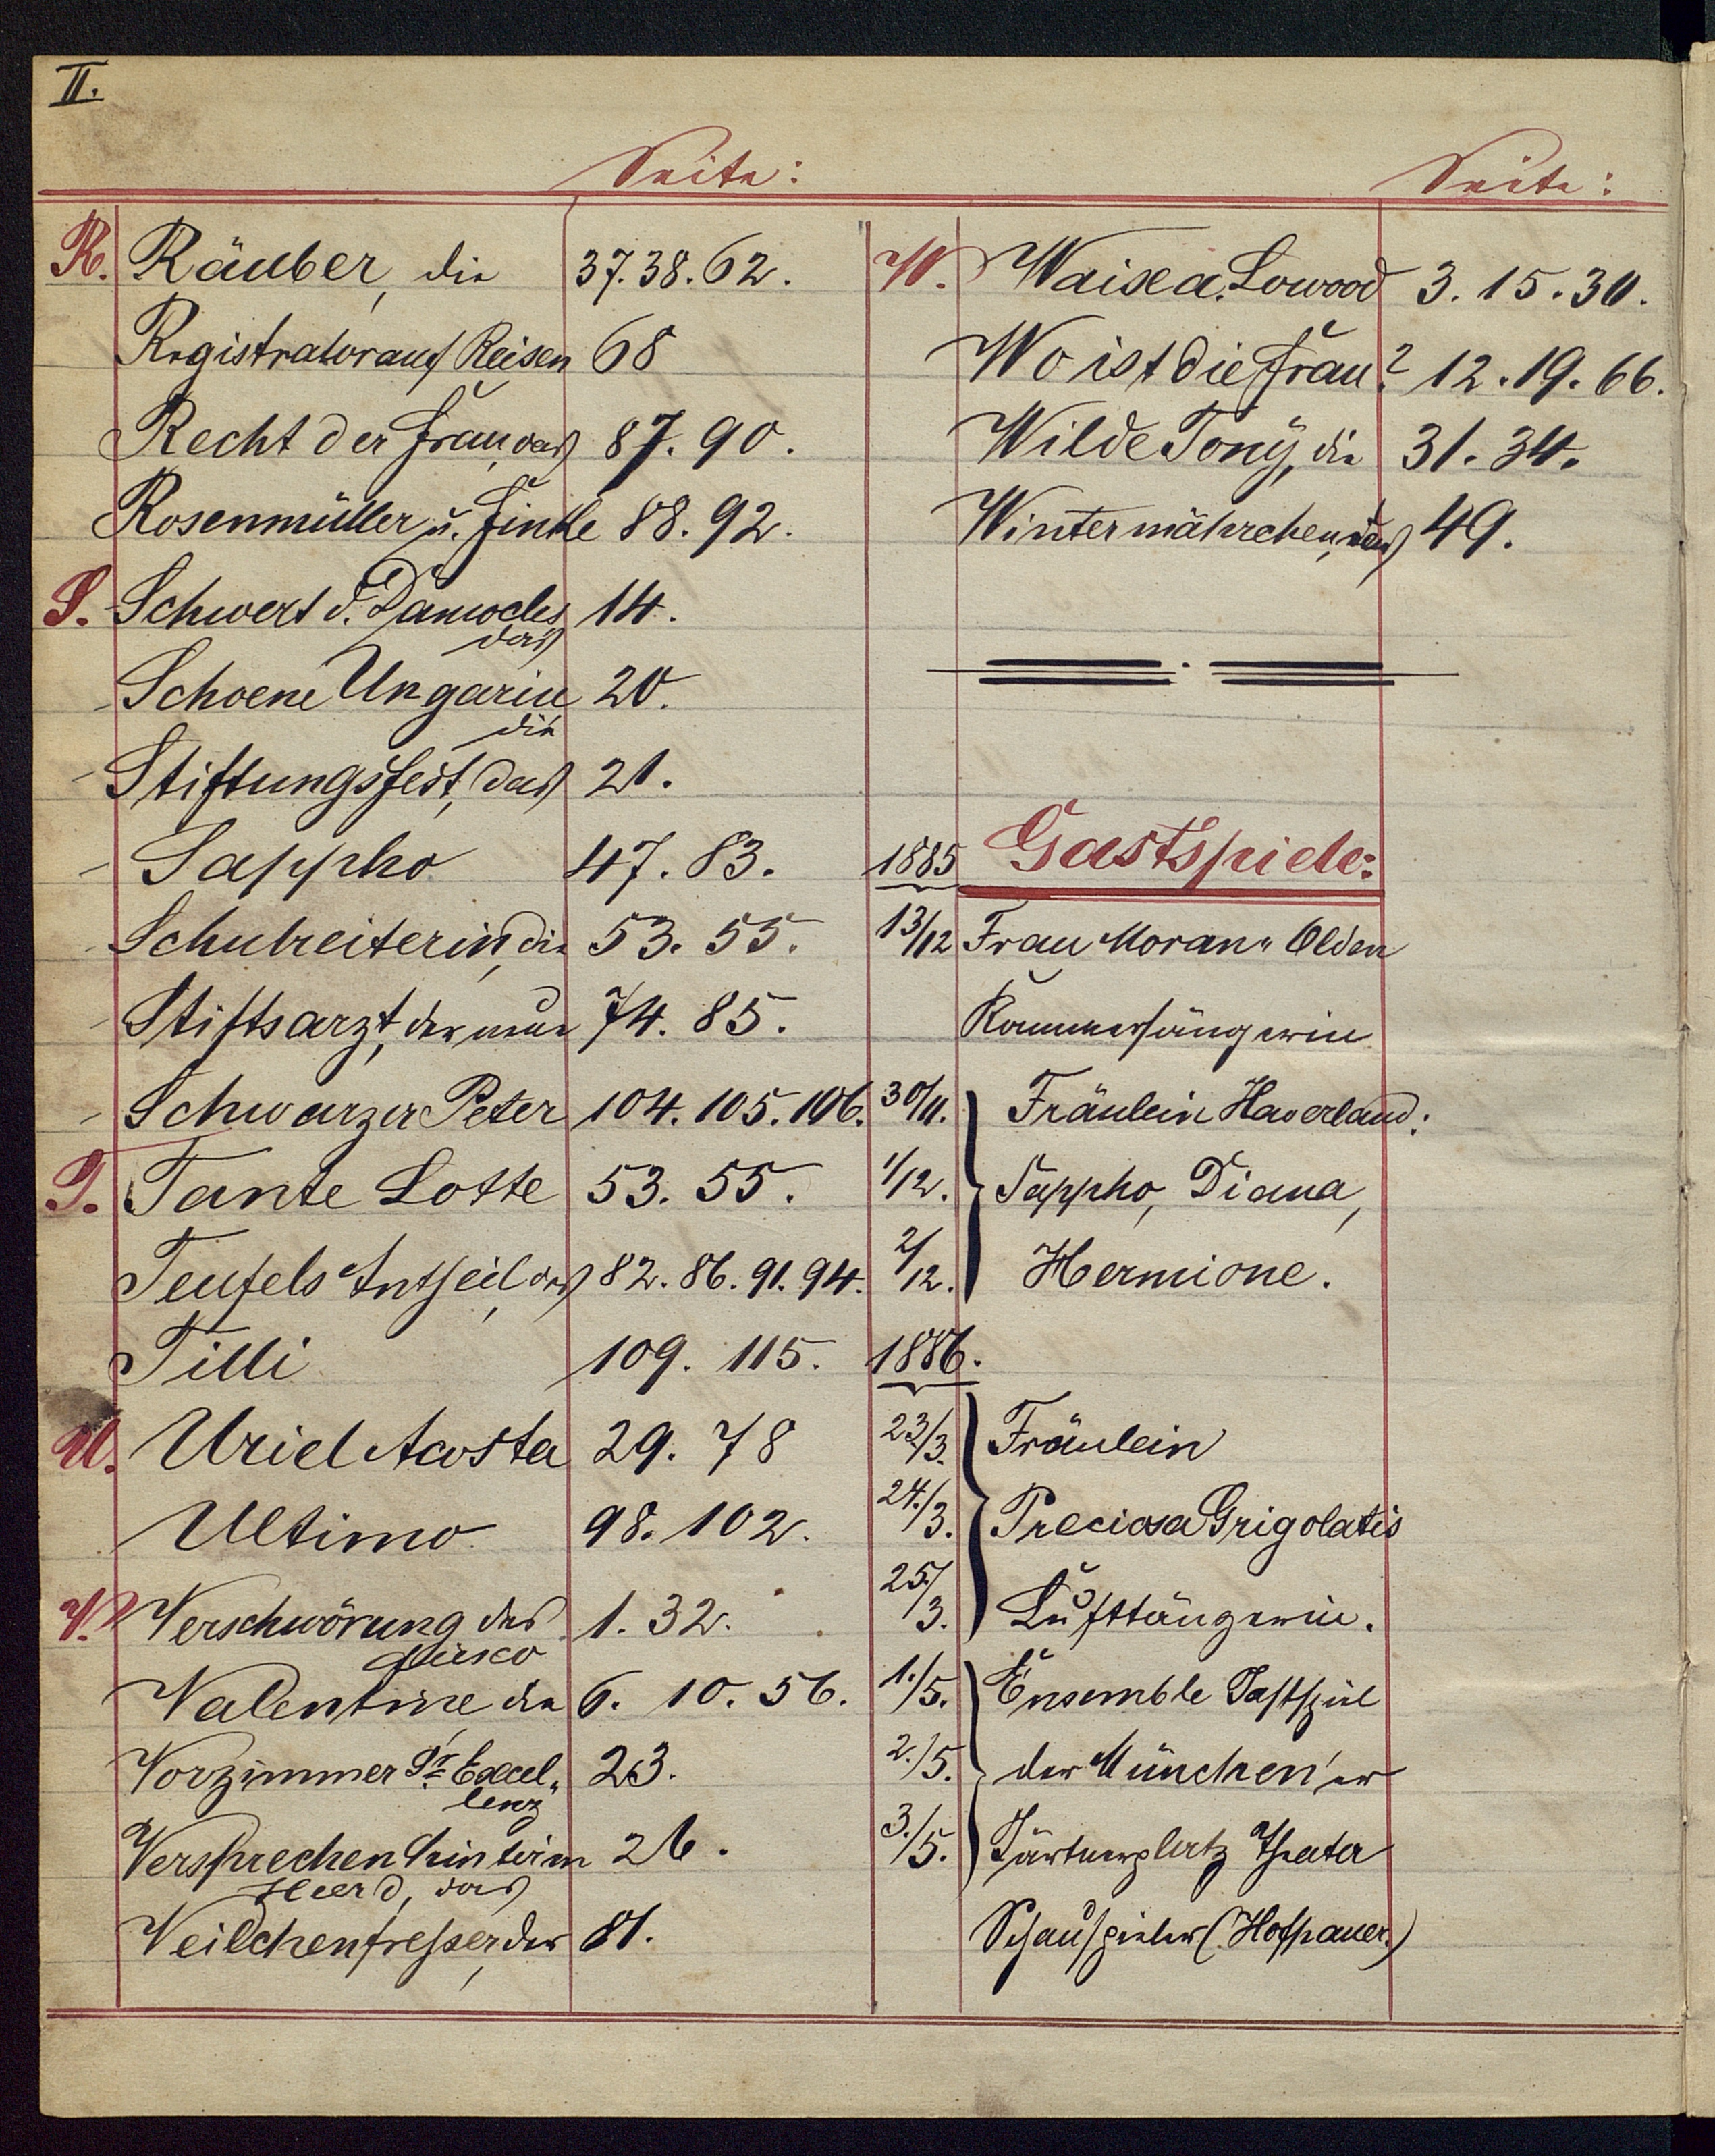 II.
Seite:
R. Räuber, die 37. 38. 62.
Registrator auf Reisen 68
Recht der Frau, das 87. 90.
Rosenmüller u. Finke 88. 92.
S. Schwert d. Damocles 14.
das
Schoene Ungarin 20.
die
Stiftungsfest, das 21.
Sappho 47. 83.
Schulreiterin, die 53. 55.
Stiftsarzt, der neue 74. 85.
Schwarzer Peter 104. 105. 106.
T. Tante Lotte 53. 55.
Teufels Antheil, des 82. 86. 91. 94.
Tilli 109. 115.
U. Uriel Acosta 29. 78
Ultimo 98. 102.
V. Verschwörung des 1. 32.
Fiesco
Valentine, die 6. 10. 56.
Vorzimmer Sr Excel„ 23.
lenz
Versprechen hinterm 26.
Heerd, das
Veilchenfresser, der 81.
Seite:
W. Waise a. Lowood 3. 15. 30.
Wo ist die Frau? 12. 19. 66.
Wilde Tony, die 31. 34.
Wintermährchen, das 49.
1885 Gastspiele:
13/12 Frau Moran„ Olden
Kammersängerin
30/11. Fräulein Haverland:
1/12. Sappho, Diana,
2/12. Hermione.
1886.
23/3. Fräulein
24./3. Preciosa Grigolatis
25/3. Lufttänzerin.
1./5. Ensemble Gastspiel
2./5. der München'er
3./5. Gärtnerplatz Theater
Schauspieler (Hofpauer.)